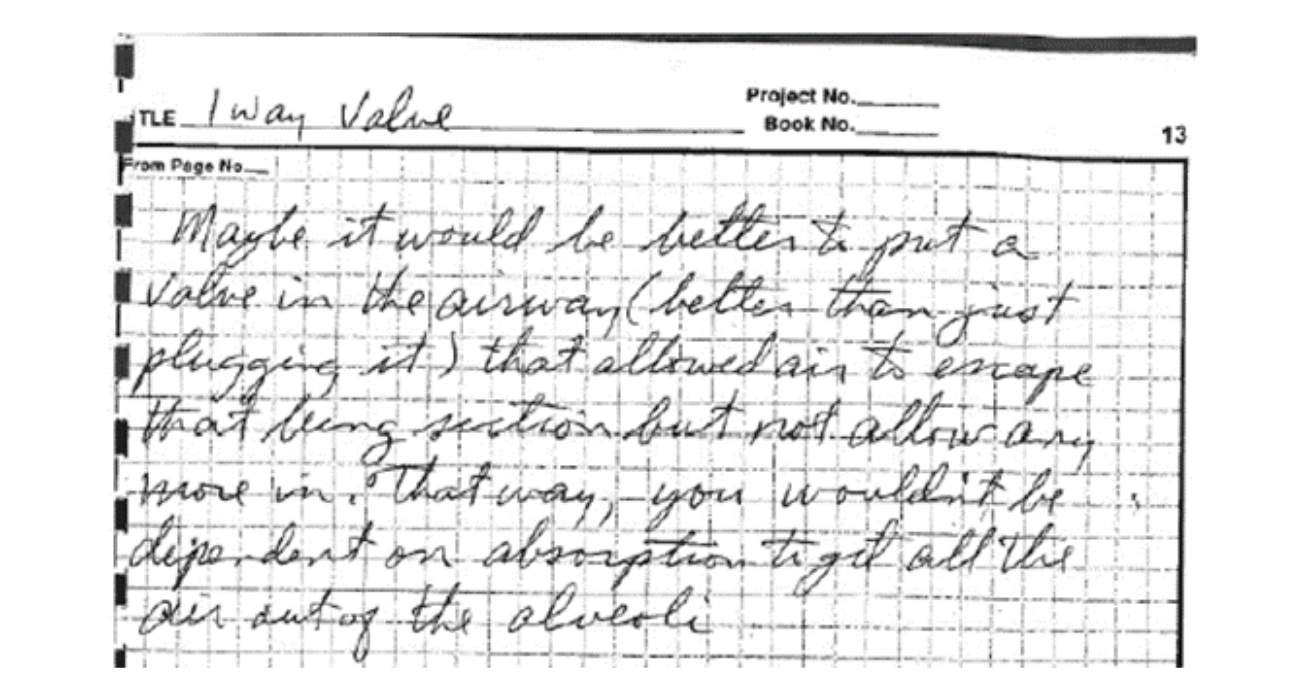 TITLE 1 way Valve
Project No.
Book No.
13
From Page No.
Maybe it would be better to put a
valve in the airway (better than just
plugging it) that allowed air to escape
that lung section but not allow any
more in. That way, you wouldn't be
dependent on absorption to get all the
air out of the alveoli